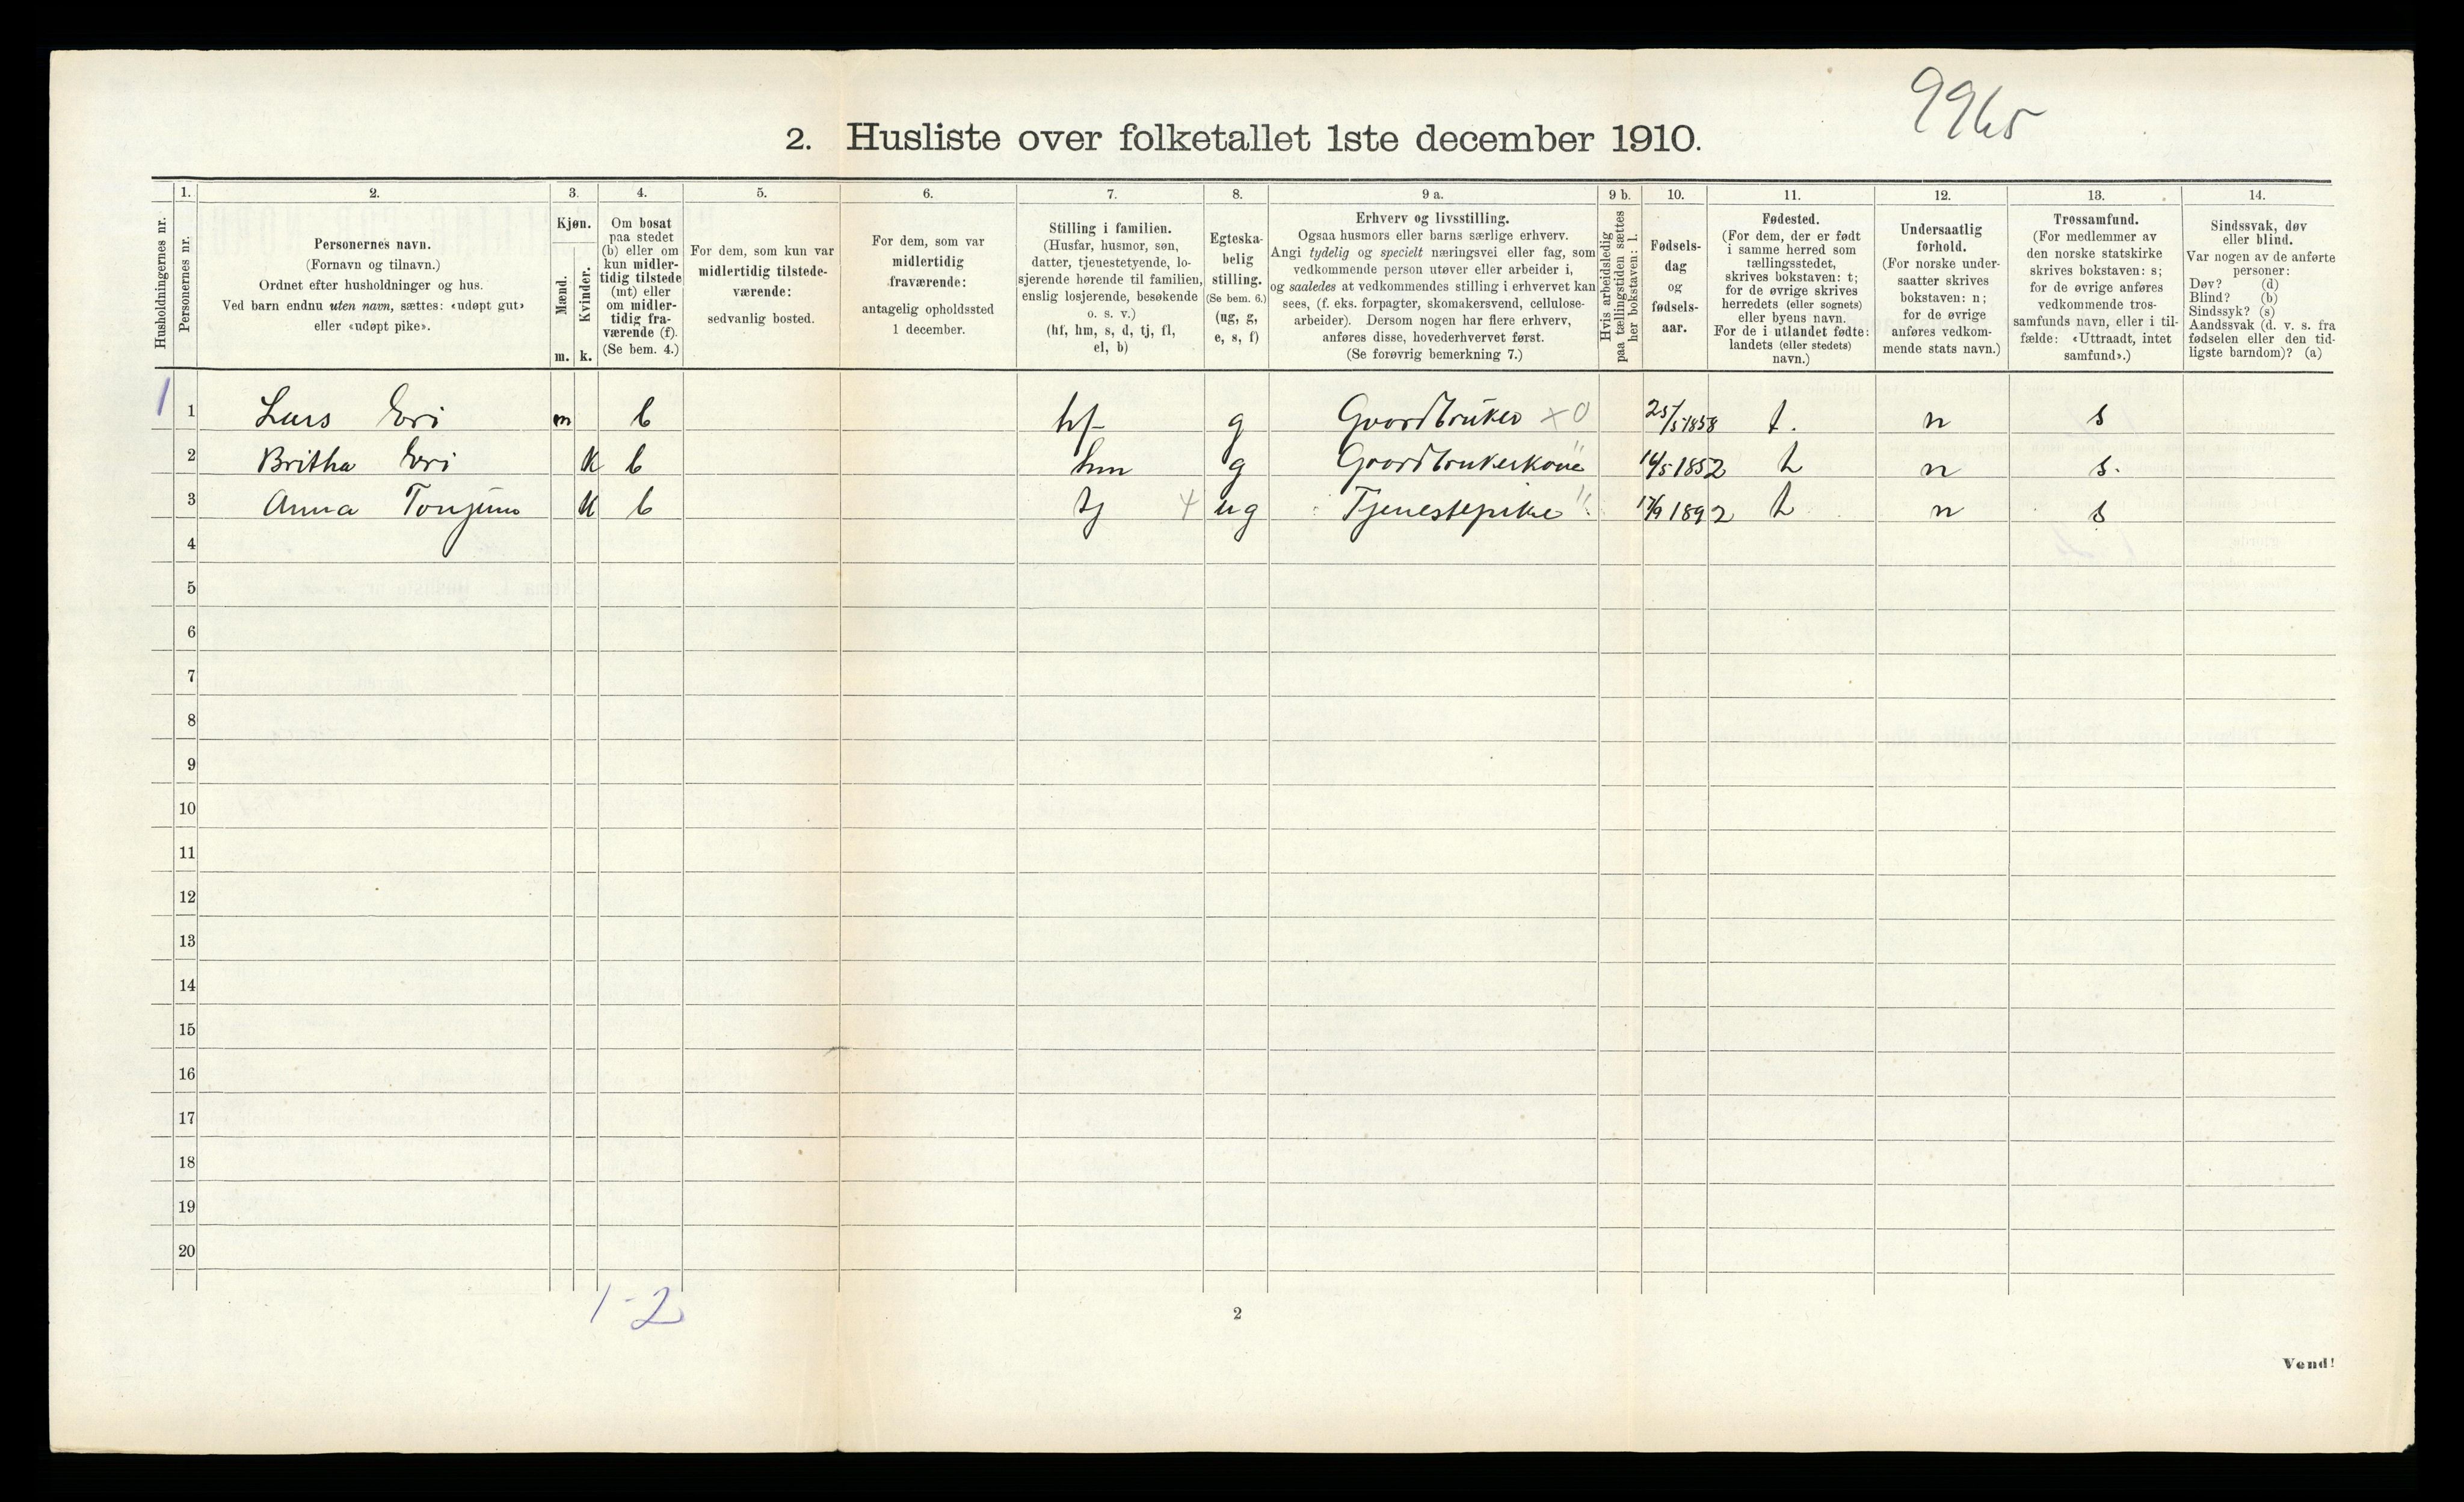 9965
2. Husliste over folketallet 1ste december 1910.
Husholdningernes nr.
1.
Personernes nr.
2.
Personernes navn.
(Fornavn og tilnavn.)
Ordnet efter husholdninger og hus.
Ved barn endnu uten navn, sættes: «udøpt gut»
eller «udøpt pike».
3.
Kjøn.
Mænd.
Kvinder.
m. k.
4.
Om bosat
paa stedet
(b) eller om
kun midler-
tidig tilstede
(mt) eller
om midler-
tidig fra-
værende (f).
(Se bem. 4.)
5.
For dem, som kun var
midlertidig tilstede-
værende:
sedvanlig bosted.
6.
For dem, som var
midlertidig
fraværende:
antagelig opholdssted
1 december.
7.
Stilling i familien.
(Husfar, husmor, søn,
datter, tjenestetyende, lo-
sjerende hørende til familien,
enslig losjerende, besøkende
o. s. v.)
(hf, hm, s, d, tj, fl,
el, b)
8.
Egteska-
belig
stilling.
(Se bem. 6.)
(ug, g,
e, s, f)
9 a.
Erhverv og livsstilling.
Ogsaa husmors eller barns særlige erhverv.
Angi tydelig og specielt næringsvei eller fag, som
vedkommende person utøver eller arbeider i,
og saaledes at vedkommendes stilling i erhvervet kan
sees, (f. eks. forpagter, skomakersvend, cellulose-
arbeider). Dersom nogen har flere erhverv,
anføres disse, hovederhvervet først.
(Se forøvrig bemerkning 7.)
9 b.
Hvis arbeidsledig
paa tællingstiden sættes
her bokstaven: l.
10.
Fødsels-
dag
og
fødsels-
aar.
11.
Fødested.
(For dem, der er født
i samme herred som
tællingsstedet,
skrives bokstaven: t;
for de øvrige skrives
herredets (eller sognets)
eller byens navn.
For de i utlandet fødte:
landets (eller stedets)
navn.)
12.
Undersaatlig
forhold.
(For norske under-
saatter skrives
bokstaven: n;
for de øvrige
anføres vedkom-
mende stats navn.)
13.
Trossamfund.
(For medlemmer av
den norske statskirke
skrives bokstaven: s;
for de øvrige anføres
vedkommende tros-
samfunds navn, eller i til-
fælde: «Uttraadt, intet
samfund».)
14.
Sindssvak, døv
eller blind.
Var nogen av de anførte
personer:
Døv? (d)
Blind? (b)
Sindssyk? (s)
Aandssvak (d. v. s. fra
fødselen eller den tid-
ligste barndom)? (a)
1 1 Lars Eri m b hf g Gaardbruker x 0 25/5 1858 t. n s
2 Britha Eri k b hm g Gaardbrukerkone " 14/5 1852 t n s.
3 Anna Tonjum k b tj 4 ug Tjenestepike " 17/9 1892 t n s
4
5
6
7
8
9
10
11
12
13
14
15
16
17
18
19
20
1-2
2
Vend!